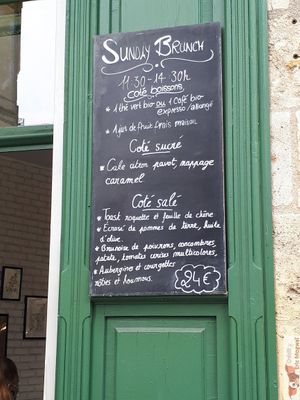 SUNDAY BRUNCH
11:30 - 14:30h
Coté boissons
* 1 thé vert bio ou 1 café bio
expresso/allongé
* 1 jus de fruit frais maison
Coté sucre
* Cake citron pavot, nappage
caramel
Coté salé
* Toast roquette et feuille de chêne
* Ecrasé de pommes de terre, huile
d'olive.
* Brunoise de poivrons, concombres,
patate, tomates cerises multicolores,
* Aubergines et courgettes
rôties et houmous.
24€